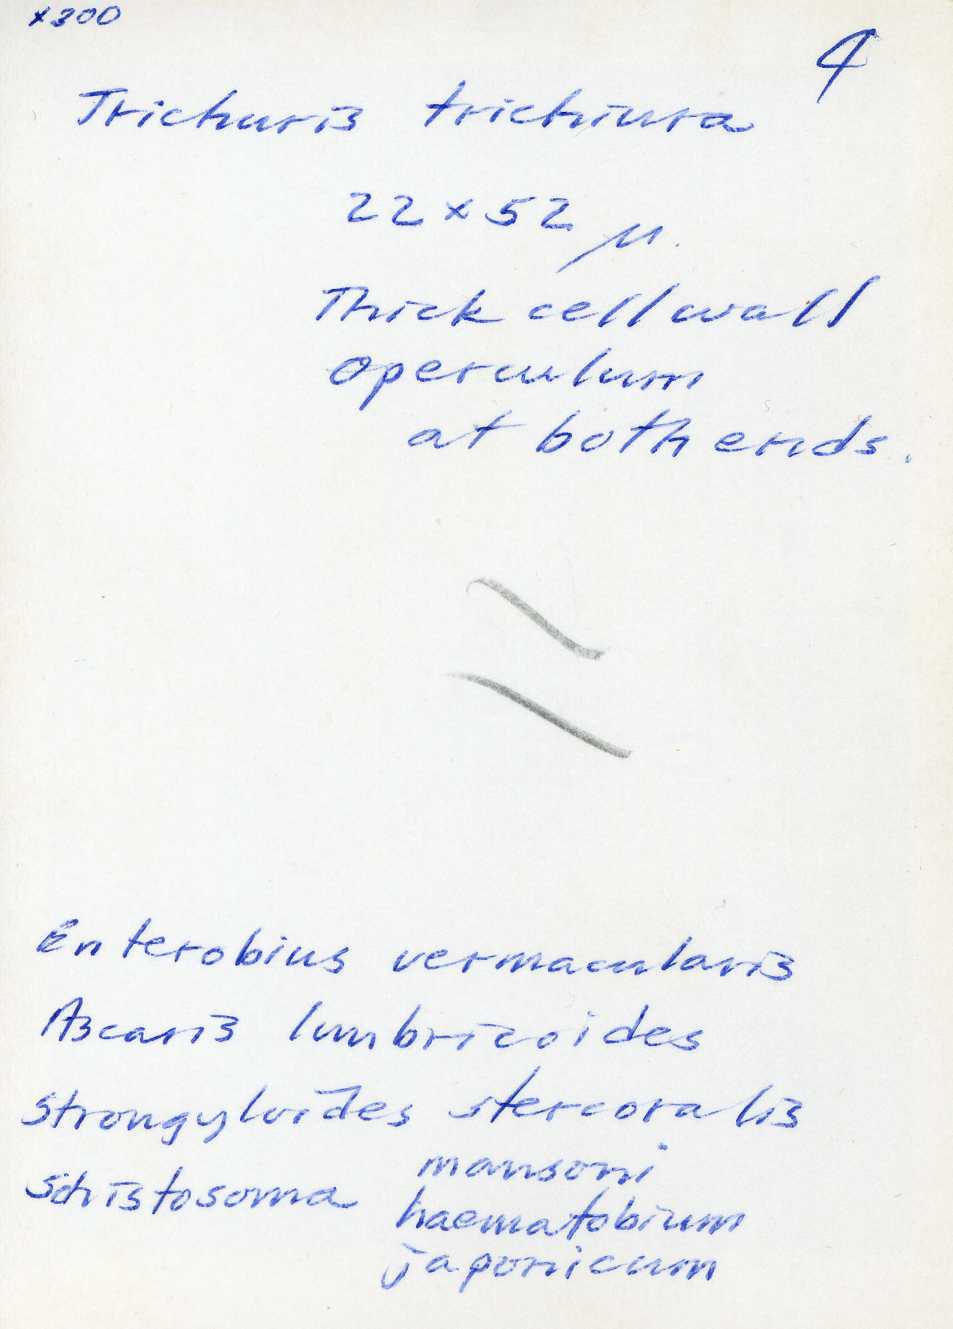 x300
4
Trichuris trichiura
22 x 52 μ.
Thick cell wall
operculum
at both ends.
Enterobius vermacularis
Ascaris lumbricoides
Strongyloides stercoralis
Schistosoma mansoni
haematobium
japonicum